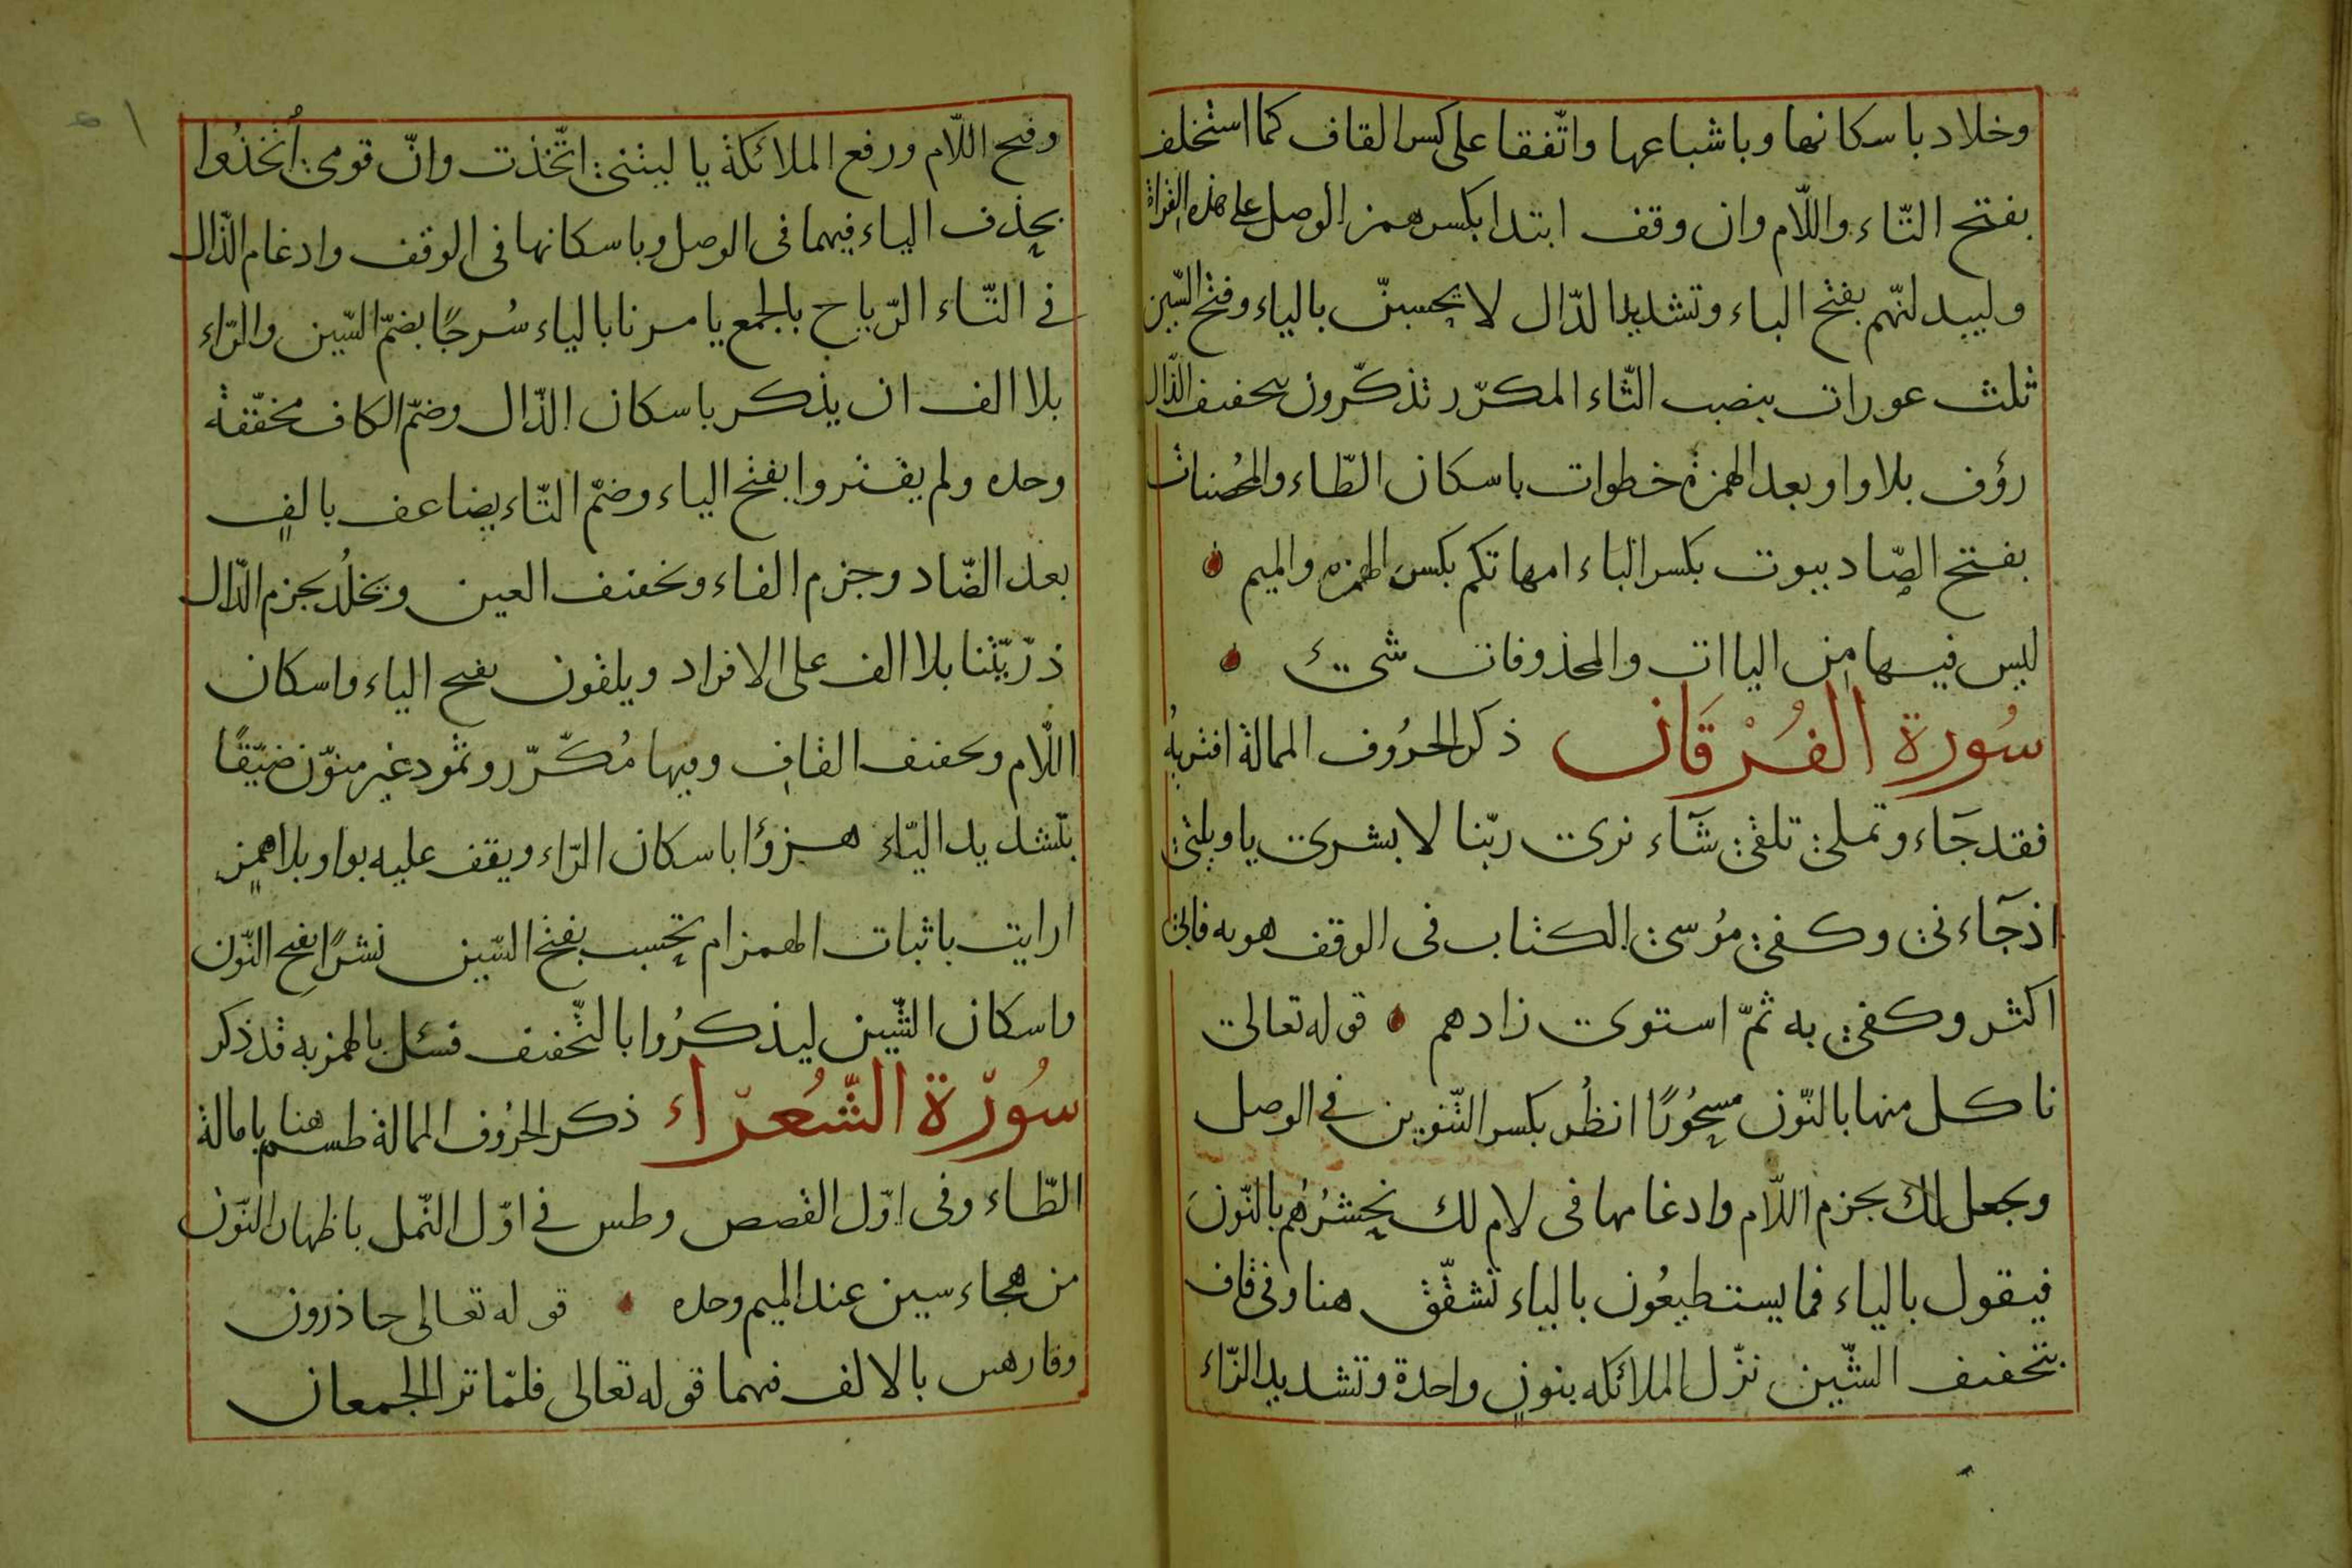 وخلاد باسكانها وباشباعها واتّفقا على كسر القاف كما استخلف
بفتح التّاء واللّام وان وقف ابتدا بكسر همز الوصل على هذه القراة
وليبدلنّهم بفتح الباء وتشديد الدّال لا يحسبنّ بالياء وفتح السّين
ثلث عورات بنصب الثّاء المكرّر تذكّرون بتخفيف الذّال
رؤف بلا واو بعد الهمزة خطوات باسكان الطّاء والمحُصنات
بفتح الصّاد بيوت بكسر الباء امهاتكم بكسر الهمزه والميم
ليس فيها من الياات والمحذوفات شىء
سُورة الفُرْقَان ذكر الحرُوف الممالة افتريهُ
فقد جَاء وتملىٰ تلقىٰ شَاء نرى ربّنا لا بشرى ياويلتىٰ
اذ جَاءنى وكفىٰ موُسىٰ الكتاب فى الوقف هويه فابىٰ
اكثر وكفىٰ به ثمّ استوى زادهم قوله تعالى
ناكل منها بالنّون مسحُورًا انظُر بكسر التّنوين فى الوصل
ويجعل لك بجزم اللّام وادغامها فى لام لك نحشرُهُم بالنّونَ
فيقول بالياء فما يستطيعُون بالياء تشقّق هنا وفى قاف
بتخفيف الشّين نزّل الملائكه بنونٍ واحدة وتشديد الزّاء
وفتح اللّام ورفع الملائكة يا ليتنىٰ اتّخذت وانّ قومىٰ اُتّخذُوا
بحذف الياء فيهما فى الوصل وباسكانها فى الوقف وادغام الذّال
فى التّاء الرّياح بالجمع يامرنا بالياء سُرجًا بضمّ السّين والرّاء
بلا الف ان يذكر باسكان الذّال وضمّ الكاف مخفّفة
وحده ولم يقتروا بفتح الياء وضمّ التّاء يضاعف بالفٍ
بعد الضّاد وجزم الفاء وتخفيف العين ويخلُد بجزم الدّال
ذرّيّتنا بلا الف على الافراد ويلقون بفتح الياء واسكان
اللّام وتخفيف القاف وفيها مُكرّر وثمود غير منوّن ضيّقًا
بتشديد اليّاء هزؤًا باسكان الزّاء ويقف عليه بواو بلا همزٍ
ارايت باثبات الهمز ام تحسب بفتح السّين نشرًا بفتح النّون
واسكان الشّين ليذكرُوا بالتّخفيف فسئل بالهمز به قد ذكر
سُورَة الشُّعرَاء ذكر الحرُوف الممالة طسم هنا بامالة
الطّاء وفى اوّل القصص وطس فى اوّل النّمل باظهار النّون
من هجاء سين عند الميم وحده قوله تعالى حاذرون
وفارهين بالالف فيهما قوله تعالى فلمّا ترا الجمعان